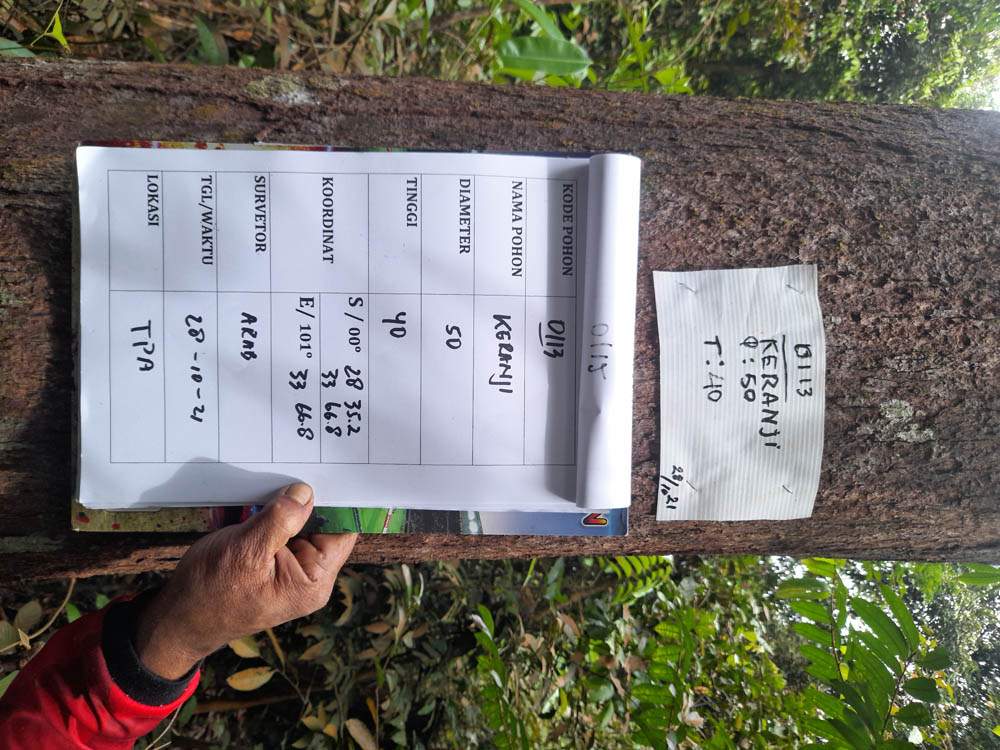 0113
KERANJI
Φ : 50
T : 40
28/10 21
0115
KODE POHON 0113
NAMA POHON KERANJI
DIAMETER 50
TINGGI 40
KOORDINAT S / 00° 28 35.2
33 66.8
E/ 101° 33 66.8
SURVETOR ARAB
TGL/WAKTU 28-10-21
LOKASI TPA